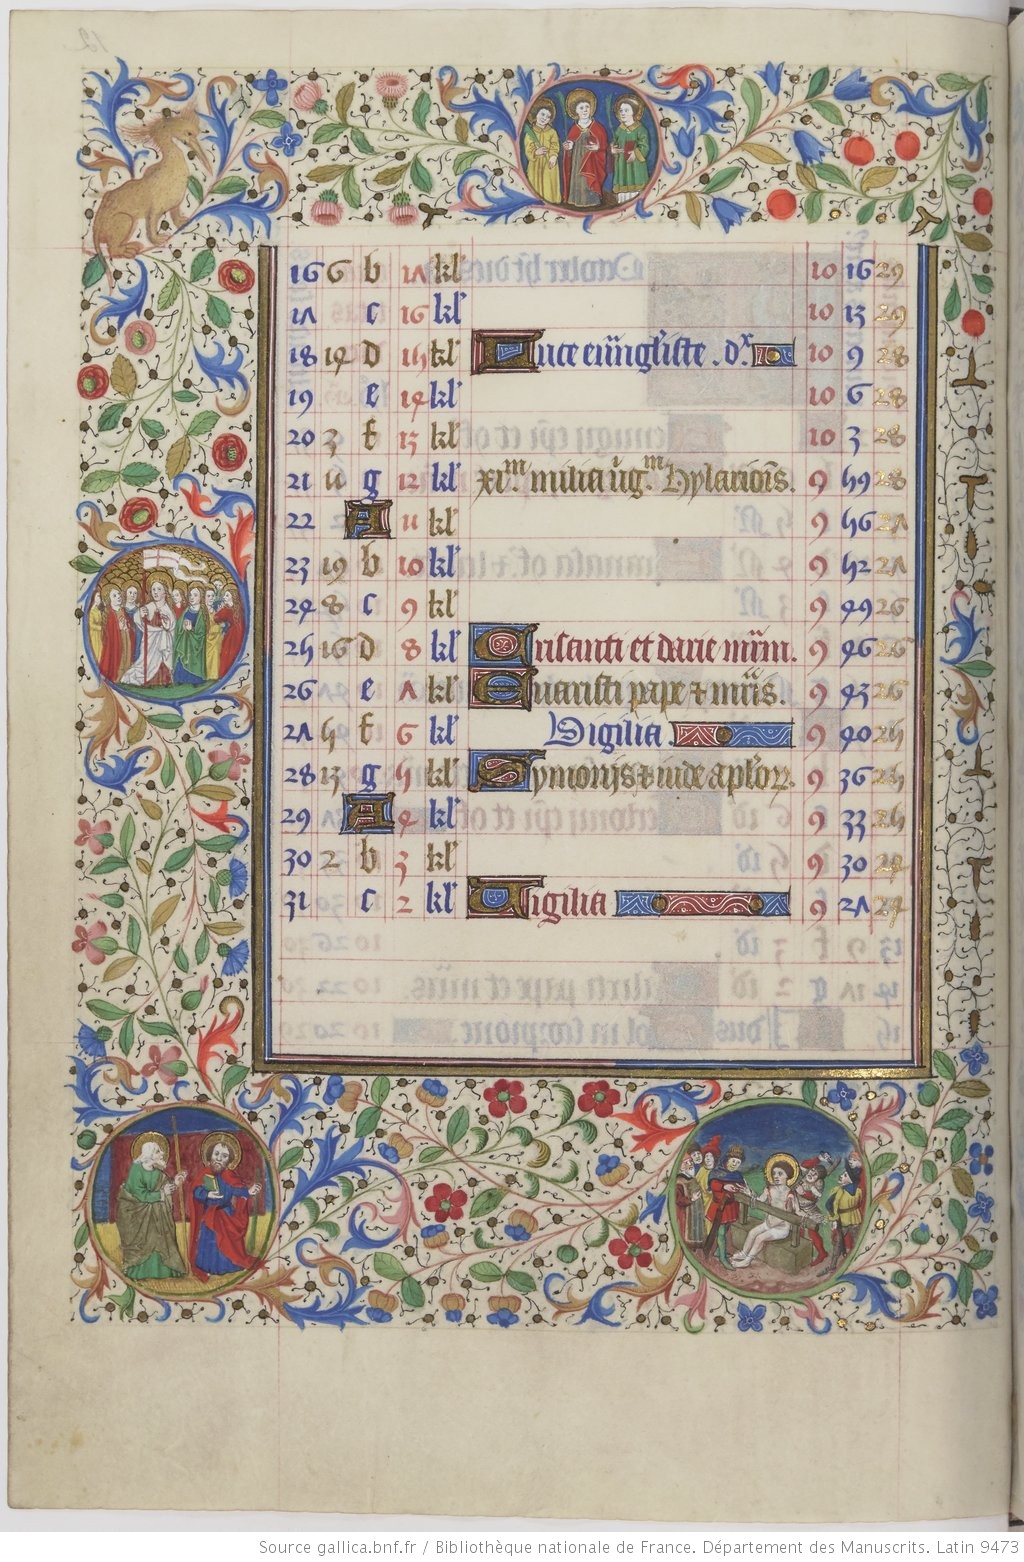 16 6 b 17 kl' 10 16 29
17 c 16 kl' 10 13 29
18 14 D 15 kl' Luce euūgl'iste . dx 10 9 28
19 e 14 kl' 10 6 28
20 3 f 13 kl' 10 3 28
21 11 g 12 kl' xi.m milia v̄ig.m hylarionis. 9 59 28
22 A 11 kl' 9 56 27
23 19 b 10 kl' 9 52 27
24 8 c 9 kl' 9 49 26
25 16 D 8 kl' Crisanti et darie mr̄m. 9 46 26
26 e 7 kl' Euaristi pape & mr̄is. 9 43 26
27 5 f 6 kl' Vigilia. 9 40 25
28 13 g 5 kl' Symonis & iude aplorꝝ. 9 36 25
29 A 4 kl' 9 33 25
30 2 b 3 kl' 9 30 24
31 c 2 kl' Uigilia 9 27 24
Source gallica.bnf.fr / Bibliothèque nationale de France. Département des Manuscrits. Latin 9473